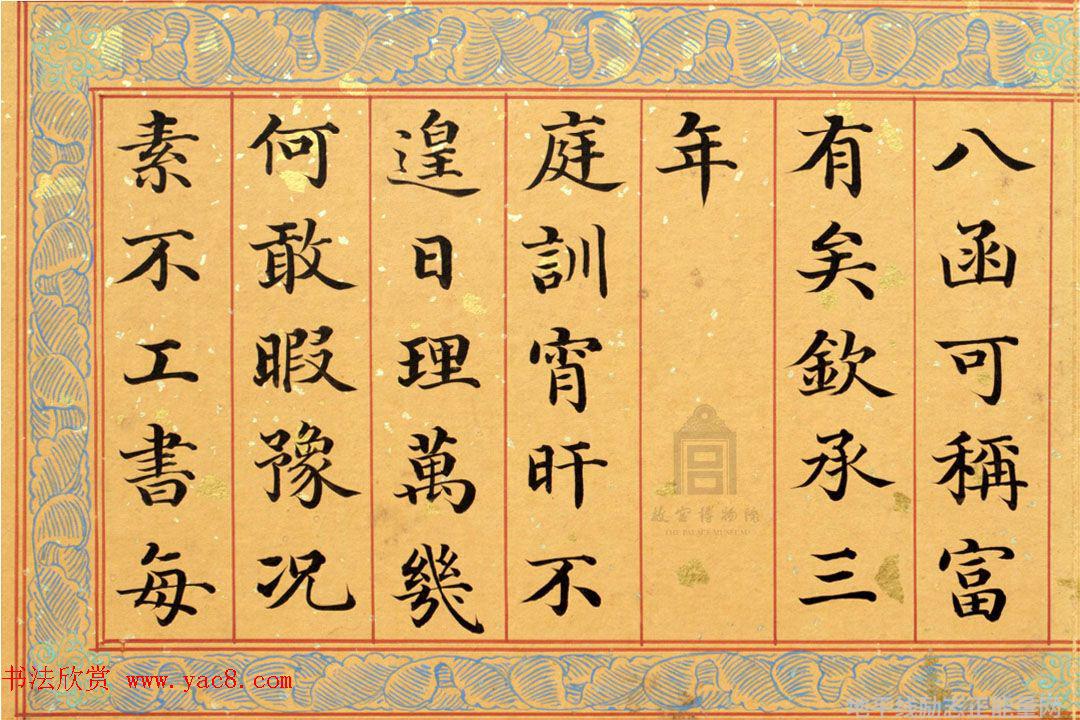 八函可稱富
有矣欽承三
年
庭訓宵旰不
遑日理萬幾
何敢暇豫况
素不工書每
故宮博物院
THE PALACE MUSEUM
书法欣赏 www.yac8.com